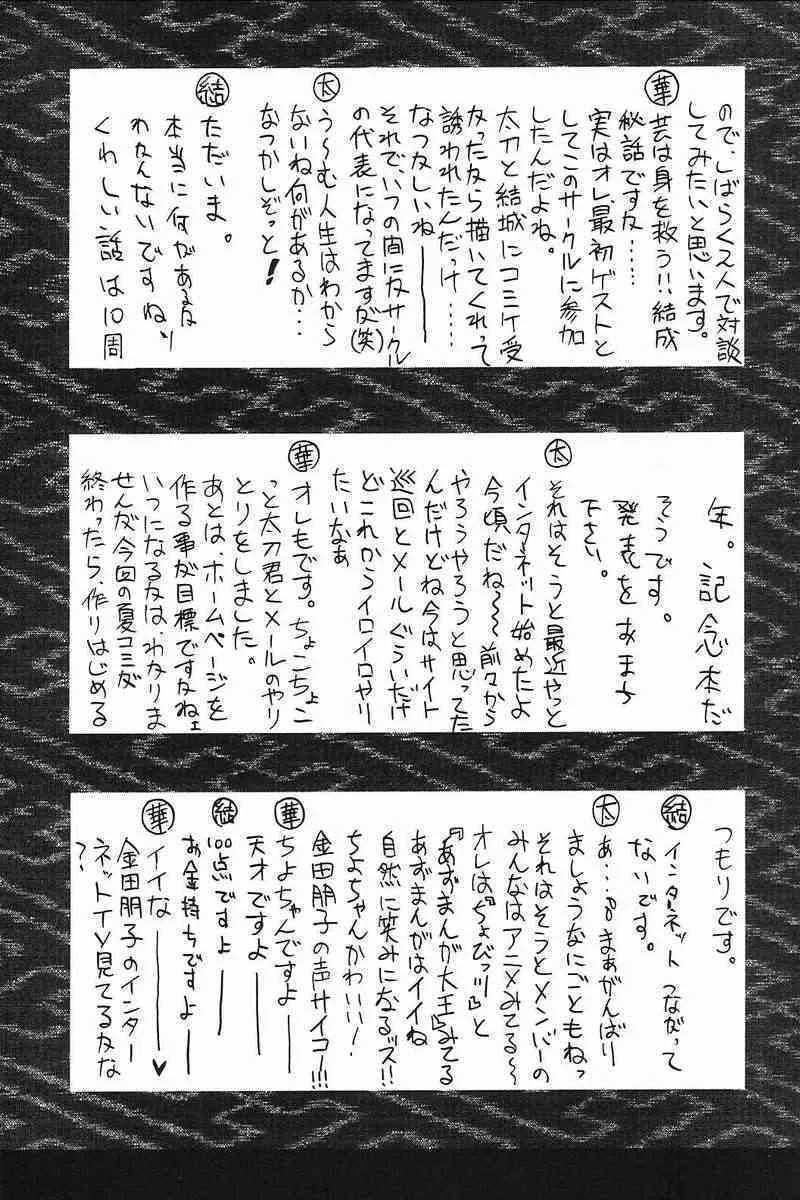 ので、しばらく2人で対談
してみたいと思います。
華 芸は身を救う!!結成
秘話ですな……
実はオレ、最初ゲストと
してこのサークルに参加
したんだよね。
太刀と結城にコミケ受
かったなら描いてくれって
誘われたんだっけ……
なつかしいね――
それで、いつの間にかサークル
の代表になってますが(笑)
太 う〜む人生はわから
ないね何があるか…
なつかしぞっと!
結 ただいま。
本当に何があるか
わかんないですねぃ
くわしい話は10周
年。記念本だ
そうです。
発表をおまち
下さい。
太 それはそうと最近やっと
インターネット始めたよ
今頃だね〜〜前々から
やろうやろうと思ってた
んだけどね今はサイト
巡回とメールぐらいだけ
どこれからイロイロやり
たいなぁ
華 オレもです。ちょこちょこ
っと太刀君とメールのやり
とりをしました。
あとは、ホームページを
作る事が目標ですかねェ
いつになるかは、わかりま
せんが今回の夏コミが
終わったら、作りはじめる
つもりです。
結 インターネットつながって
ないです。
太 あ…まぁがんばり
ましょうなにごともねっ
それはそうとメンバーの
みんなはアニメみてる〜
オレは『ちょびっツ』と
『あずまんが大王』みてる
あずまんがはイイね
自然に笑みになるッス!!
ちよちゃんかわいい!
金田朋子の声サイコー!!!
華 ちよちゃんですよ――
天才ですよ――
結 100点ですよ――
お金持ちですよ――
華 イイな――♥
金田朋子のインター
ネットTV見てるかな
?